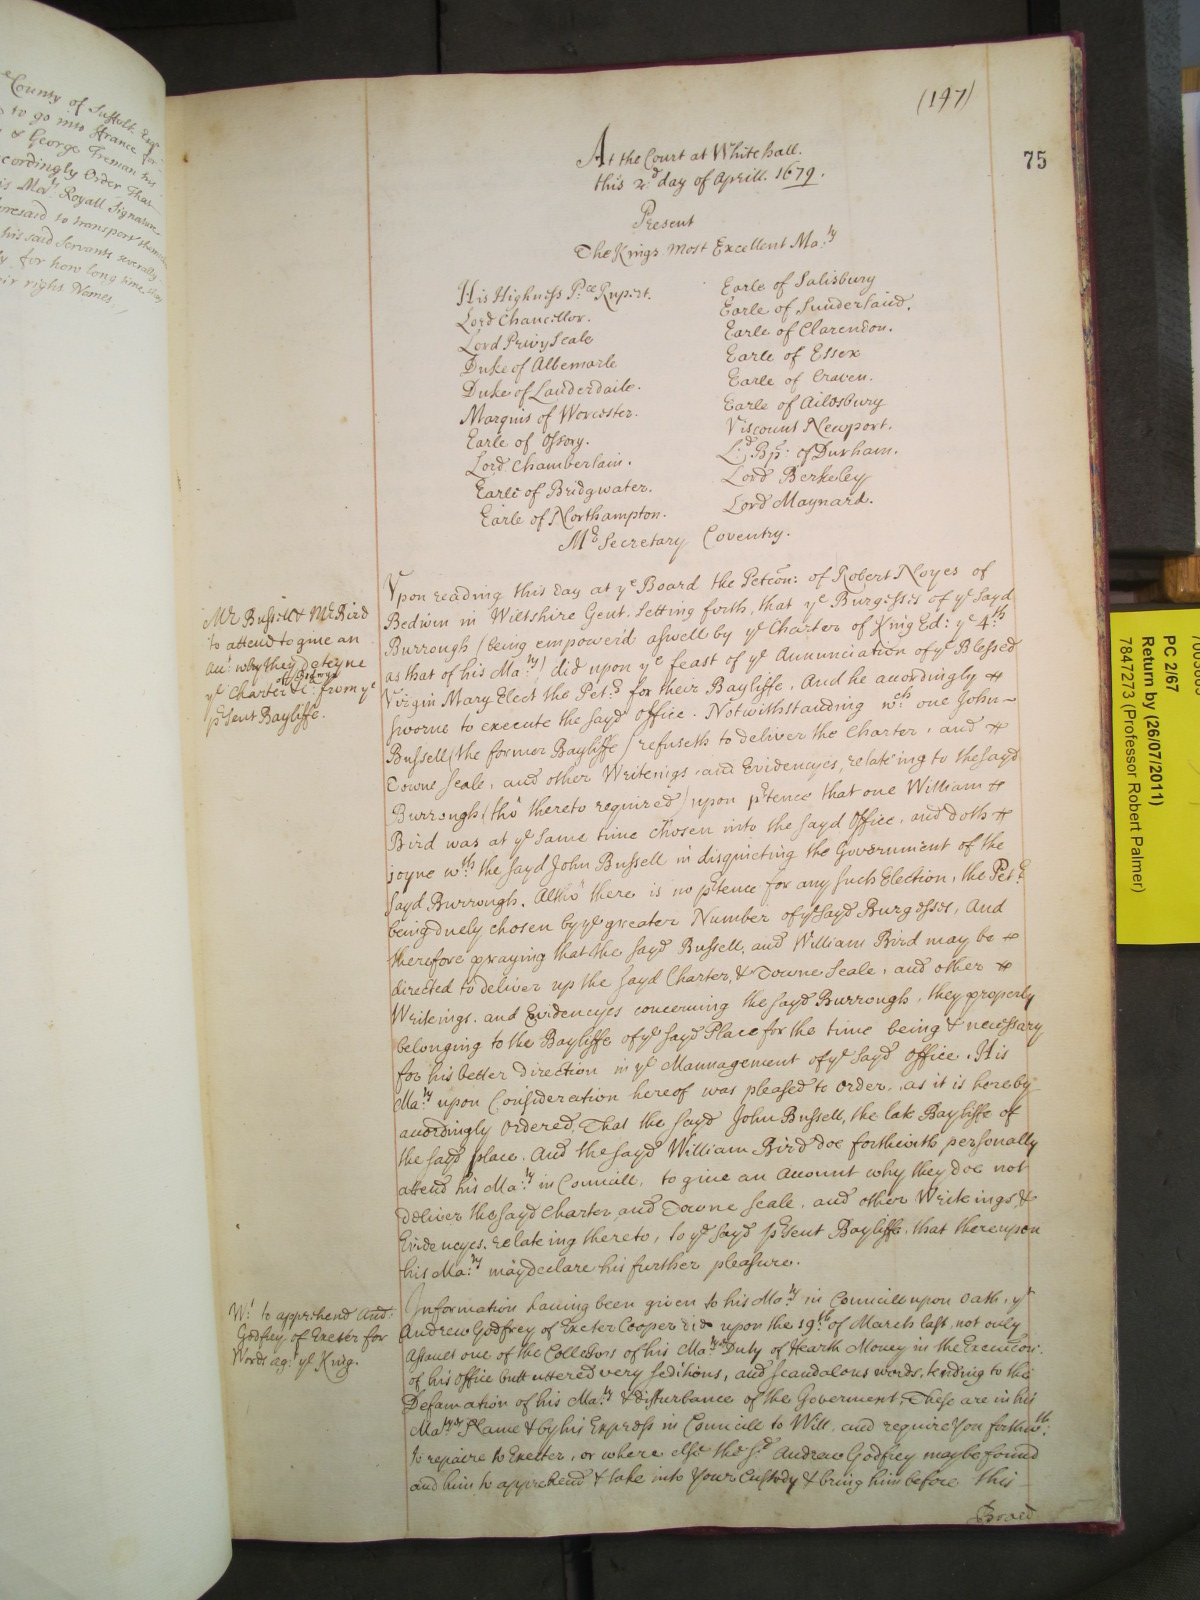 County of Suffolk Esqr
to go into France for
& George Freeman his
ccordingly Order That
is Maty Royall Signature
foresaid to transport them
his said Servants severally
for how long time they
ir right Names
(197)
75
At the Court at Whitehall.
this 2d day of Aprill. 1679.
Present
The Kings most Excellent Maty
His Highness Pce Rupert.
Lord Chancellor.
Lord Privy Seale
Duke of Albemarle
Duke of Lauderdaile.
Marquis of Worcester.
Earle of Ossory.
Lord Chamberlain.
Earle of Bridgwater.
Earle of Northampton.
Earle of Salisbury
Earle of Sunderland.
Earle of Clarendon.
Earle of Essex
Earle of Craven.
Earle of Ailesbury
Viscount Newport.
Ld Bp: of Durham.
Lord Berkeley
Lord Maynard.
Mr Secretary Coventry.
Mr Bussell & Mr Bird
to attend to give an
acct why they deteyne
ye Charter &c: of Bedwyn from ye
psent Bayliffe.
Vpon reading this day at ye Board the Petcon: of Robert Noyes of
Bedwin in Wiltshire Gent. Setting forth, that ye Burgesses of ye Sayd
Burrough (being empowerd aswell by ye Charter of King Ed: ye 4th
as that of his Maty) did upon ye feast of ye Annunciation of ye Blessed
Virgin Mary Elect the Petr for their Bayliffe, And he accordingly
sworne to execute the sayd Office. Notwithstanding wch one John
Bussell (the former Bayliffe) refuseth to deliver the Charter, and
Towne Seale, and other Writeings and Evidencyes, relateing to the sayd
Burrough (tho thereto required) upon ptence that one William
Bird was at ye same time chosen into the sayd Office, and doth
joyne wth the sayd John Bussell in disquieting the Government of the
sayd Burrough. Altho there is no ptence for any such Election, the Petr
being duely chosen by ye greater Number of ye sayd Burgesses, And
therefore praying that the sayd Bussell, and William Bird may be
directed to deliver up the sayd Charter, & Towne Seale, and other
Writeings. and Evidencyes concerning the sayd Burrough, they properly
belonging to the Bayliffe of ye sayd Place for the time being & necessary
for his better direction in ye Mannagement of ye sayd Office. His
Maty upon Consideration hereof was pleased to order, as it is hereby
accordingly Ordered, That the sayd John Bussell, the late Bayliffe of
the sayd place. And the sayd William Bird doe forthwith personally
attend his Maty in Councill, to give an Account why they doe not
deliver the sayd Charter, and Towne Seale, and other Writeings, &
Evidencyes, relateing thereto, to ye sayd psent Bayliffe, that thereupon
his Maty may declare his further pleasure.
Wt to apprehend And:
Godfrey of Exeter for
Words agt ye King.
Information having been given to his Maty in Councill upon Oath, yt
Andrew Godfrey of Exeter Cooper did upon the 19th of March last, not only
Assault one of the Collectors of his Matys Duty of Hearth Money in the Execucon:
of his Office butt uttered very seditious, and scandalous words, tending to the
Defamation of his Maty & disturbance of the Goverment, These are in his
Matys Name & by his Express in Councill to Will and require You forthwth:
to repaire to Exeter, or where else the sd Andrew Godfrey may be found
and him to apprehend & take into Your Custody & bring him before this
Board
PC 2/67
Return by (26/07/2011)
7847273 (Professor Robert Palmer)